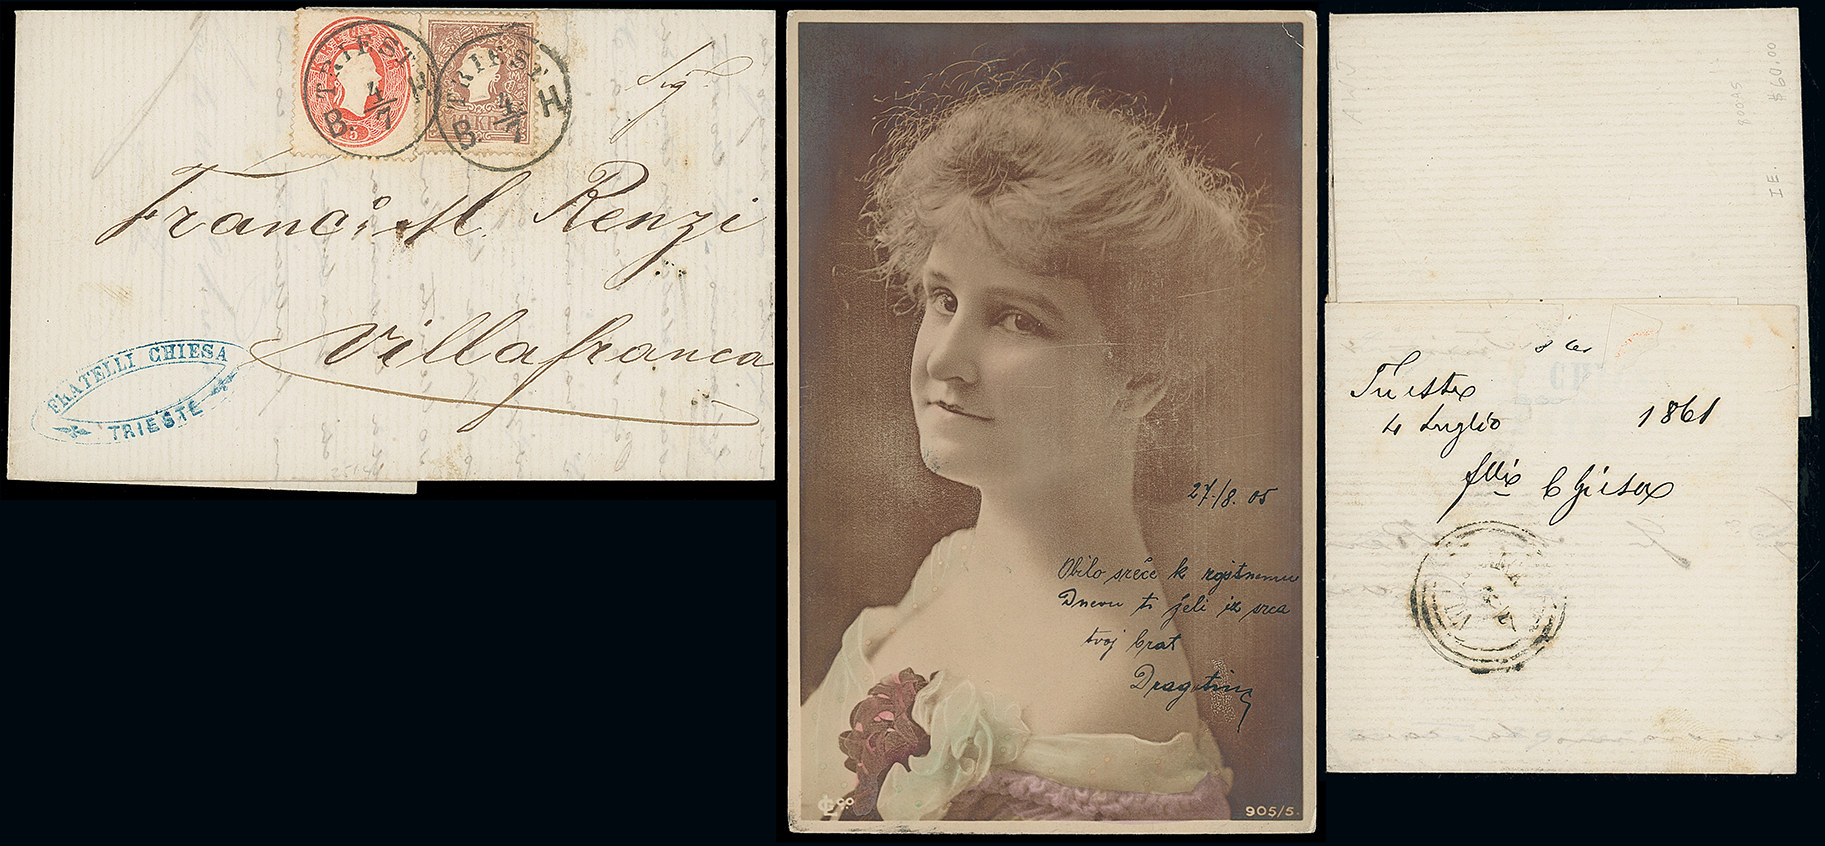 TRIEST
4/7
B. H
TRIEST
4/7
B. H
5
Sigr.
Franc. M. Renzi
Villafranca
FRATELLI CHIESA
TRIESTE
27./8. 05
Obilo sreče k rojstnemu
Dnevu ti želi iz srca
tvoj brat
Dragotin
905/5.
$60.00
IE.
Trieste
4 Luglio 1861
flli Chiesa